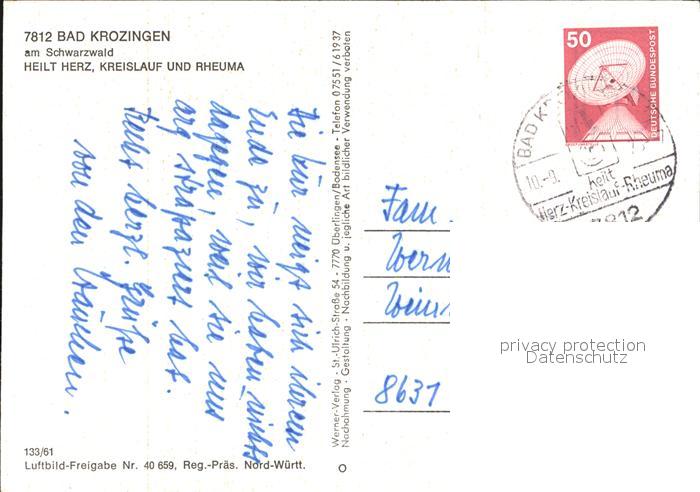 7812 BAD KROZINGEN
am Schwarzwald
HEILT HERZ, KREISLAUF UND RHEUMA
Die Kur neigt sich ihrem
Ende zu, wir haben nichts
dagegen, weil sie uns
arg strapaziert hat.
Recht herzl. Grüße
von den
133/61
Luftbild-Freigabe Nr. 40 659, Reg.-Präs. Nord-Württ.
Werner-Verlag · St.-Ulrich-Straße 54 · 7770 Überlingen/Bodensee · Telefon 07551/61937
Nachahmung · Gestaltung · Nachbildung u. jegliche Art bildlicher Verwendung verboten
50
DEUTSCHE BUNDESPOST
BAD K
10.-9.
heilt
Herz-Kreislauf-Rheuma
7812
Fam.
Wern
Wein
8631
privacy protection
Datenschutz